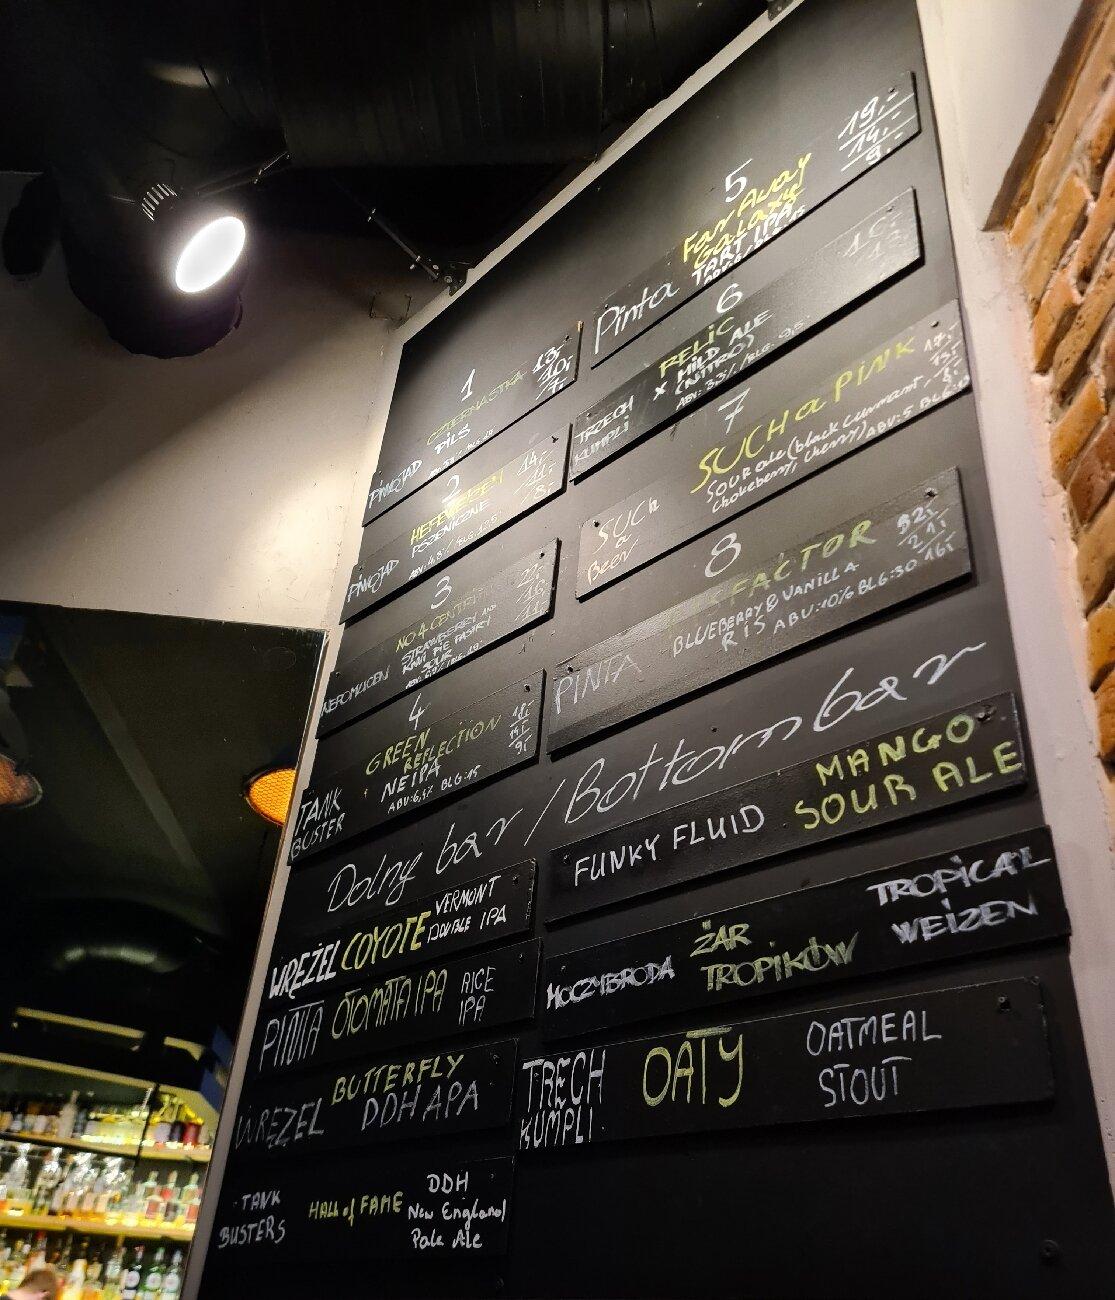 1
CZTERNASTKA 13,-
PILS 10,-
7,-
PINOJAD
2
14,-
PSZENICZNE 11,-
8,-
PINOJAD
3
NO 4 CENTRI
STRAWBERRY AND
KIWI PIE PASTRY
SOUR
NEPOMUCEN
4
GREEN
REFLECTION
NEIPA
ABV:6,5% BLG:15
TANK
BUSTER
5
Far Away
Galaxy
TART IPA
Pinta
19,-
14,-
9,-
6
RELIC
X MILD ALE
(NITRO)
TRZECH
KUMPLI
7
SUCH a PINK
SOUR ale (black currant,
chokeberry, cherry) ABV:5 BLG:
SUCH
a
Beer
8
FACTOR
BLUEBERRY & VANILLA
RIS ABV:10% BLG:30
32,-
21,-
16,-
PINTA
Dolny bar / Bottom bar
WRĘŻEL COYOTE VERMONT
DOUBLE IPA
PINTA OTOMATA IPA RICE
IPA
WRĘŻEL BUTTERFLY
DDH APA
TANK
BUSTERS HALL of FAME DDH
New England
Pale Ale
FUNKY FLUID MANGO
SOUR ALE
MOCZYBRODA ŻAR
TROPIKÓW TROPICAL
WEIZEN
TRECH
KUMPLI OATY OATMEAL
STOUT